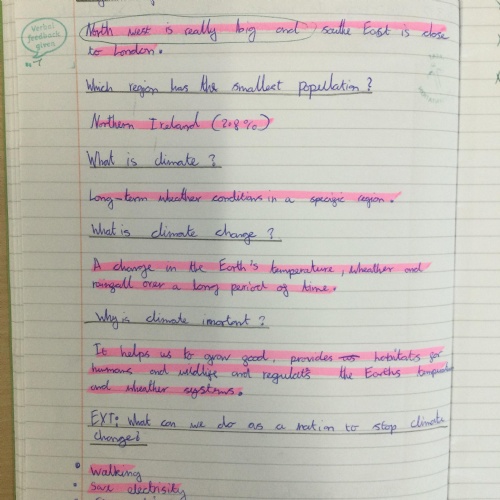 Verbal
feedback
given
North West is really big and southe East is close
to London.
Which region has the smallest population?
Northern Ireland (2.8%)
What is climate?
Long-term wheather conditions in a specific region.
What is climate change?
A change in the Earth's temperature, wheather and
rainfall over a long period of time.
Why is climate imortant?
It helps us to grow food, provides habitats for
humans and wildlife and regulats the Earths
and wheather systems.
EXT: What can we do as a nation to stop climate
change?
• Walking
• save electrisity